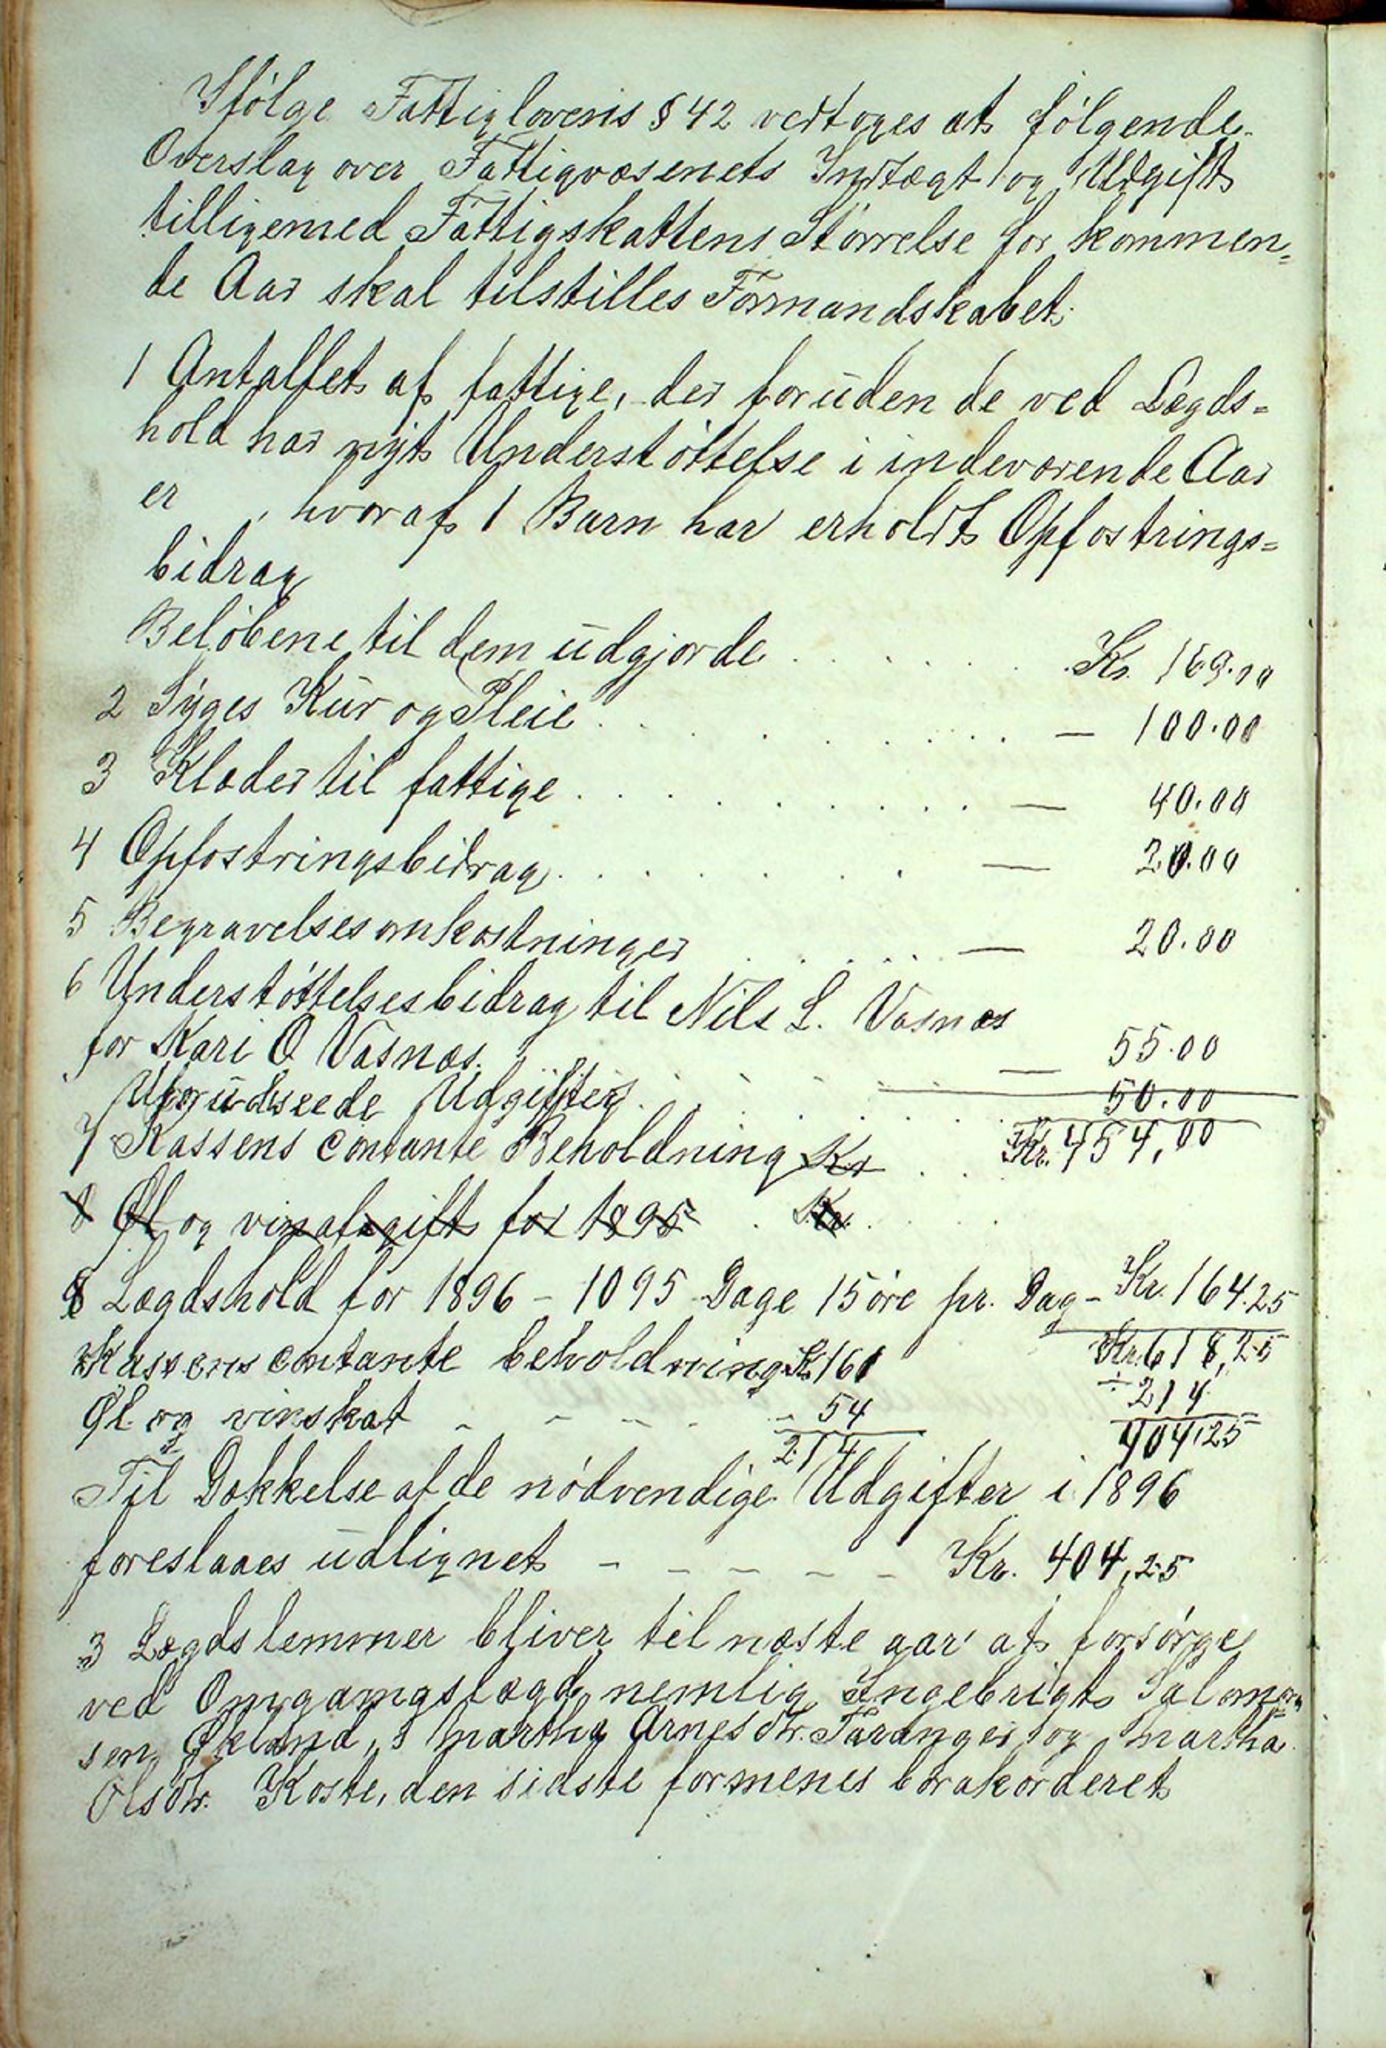 Ifølge Fattiglovens § 42 vedtoges at følgende
Overslag over Fattigvæsenets Indtægt og Udgift
tilligemed Fattigskattens Størrelse for kommen-
de Aar skal tilstilles Formandskabet.
1 Antallet af fattige, der foruden de ved Lægds-
hold har nydt Understøttelse i indeværende Aar
er , hvoraf 1 Barn har erholdt Opfostrings-
bidrag
Beløbene til dem udgjorde . . . . . . Kr. 169.00
2 Syges Kur og Pleie . . . . . . . — 100.00
3 Klæder til fattige . . . . . . . . — 40.00
4 Opfostringsbidrag . . . . . . . — 20.00
5 Begravelsesomkostninger . . . . . — 20.00
6 Understøttelsesbidrag til Nils L. Vasnæs
for Kari O Vasnæs. — 55.00
Uforudseede Udgifter . . . . . 50.00
7 Kassens contante Beholdning Kr . . . Kr. 454,00
8 Øl og vinafgift for 1895 . Kr. . . .
8 Lægdshold for 1896 – 1095 Dage 15 øre pr. Dag – Kr. 164.25
Kassens contante beholdning Kr 160 Kr. 618,25
Øl og vinskat – – – – – 54 ÷ 214
214 404,25
Til Dækkelse af de nødvendige Udgifter i 1896
foreslaaes udlignet – – – – – Kr. 404,25
3 Lægdslemmer bliver til næste aar at forsørge
ved Omgangslægd, nemlig Ingebrigt Salomon
sen Økland, Martha Arnesdtr. Taranger og Martha
Olsdtr. Koste, den sidste formenes borakorderet